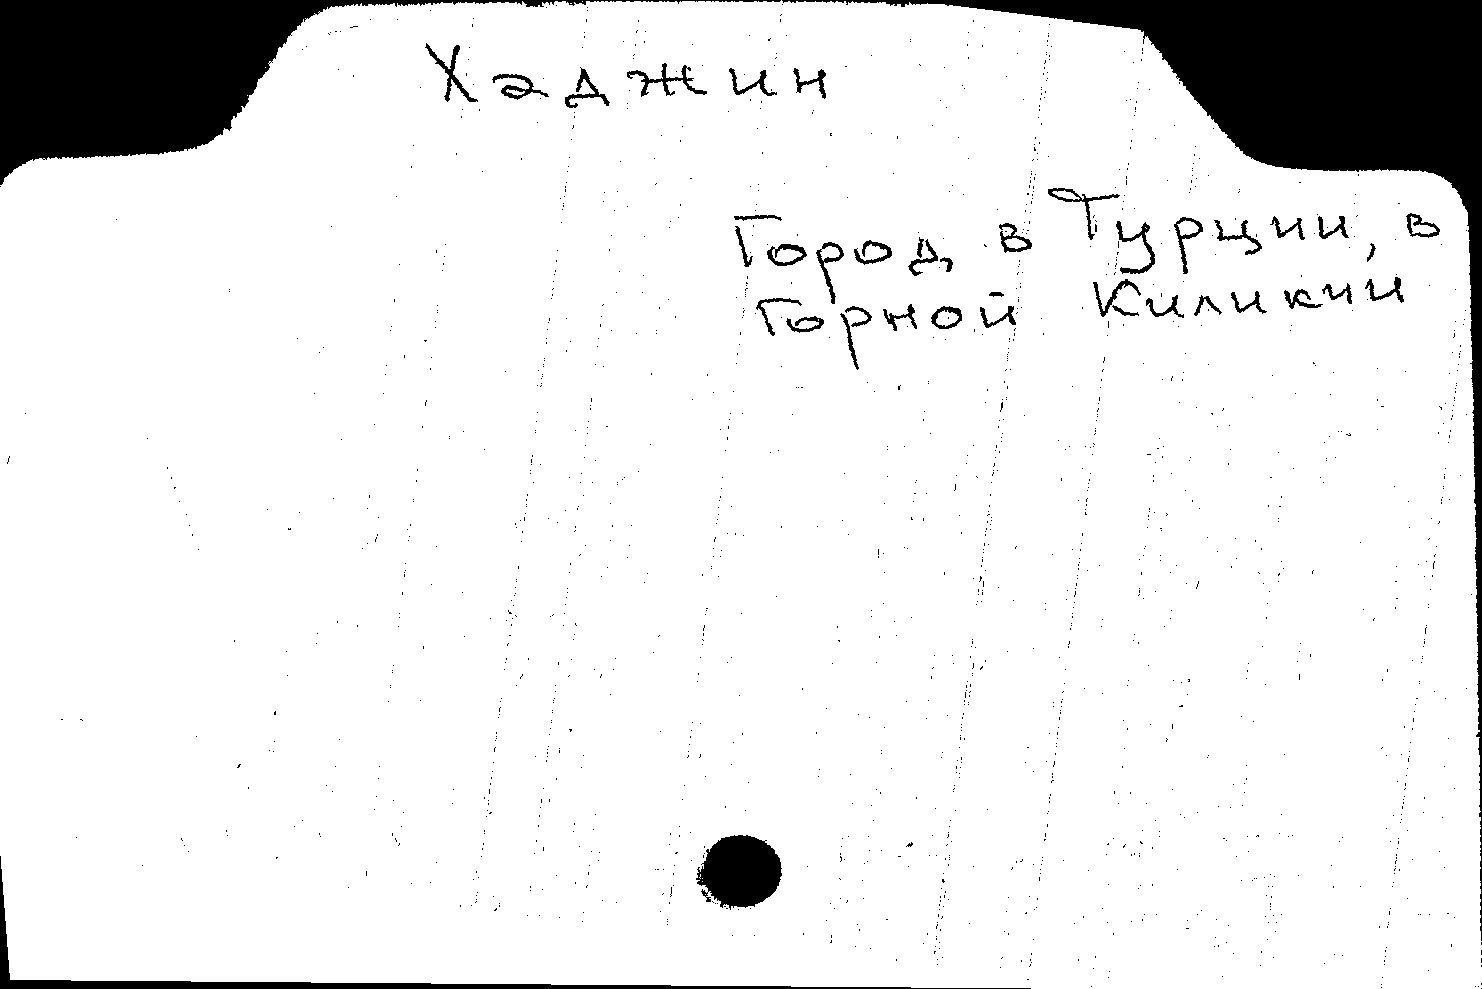 Хаджин
Город в Турции, в
Горной Киликии